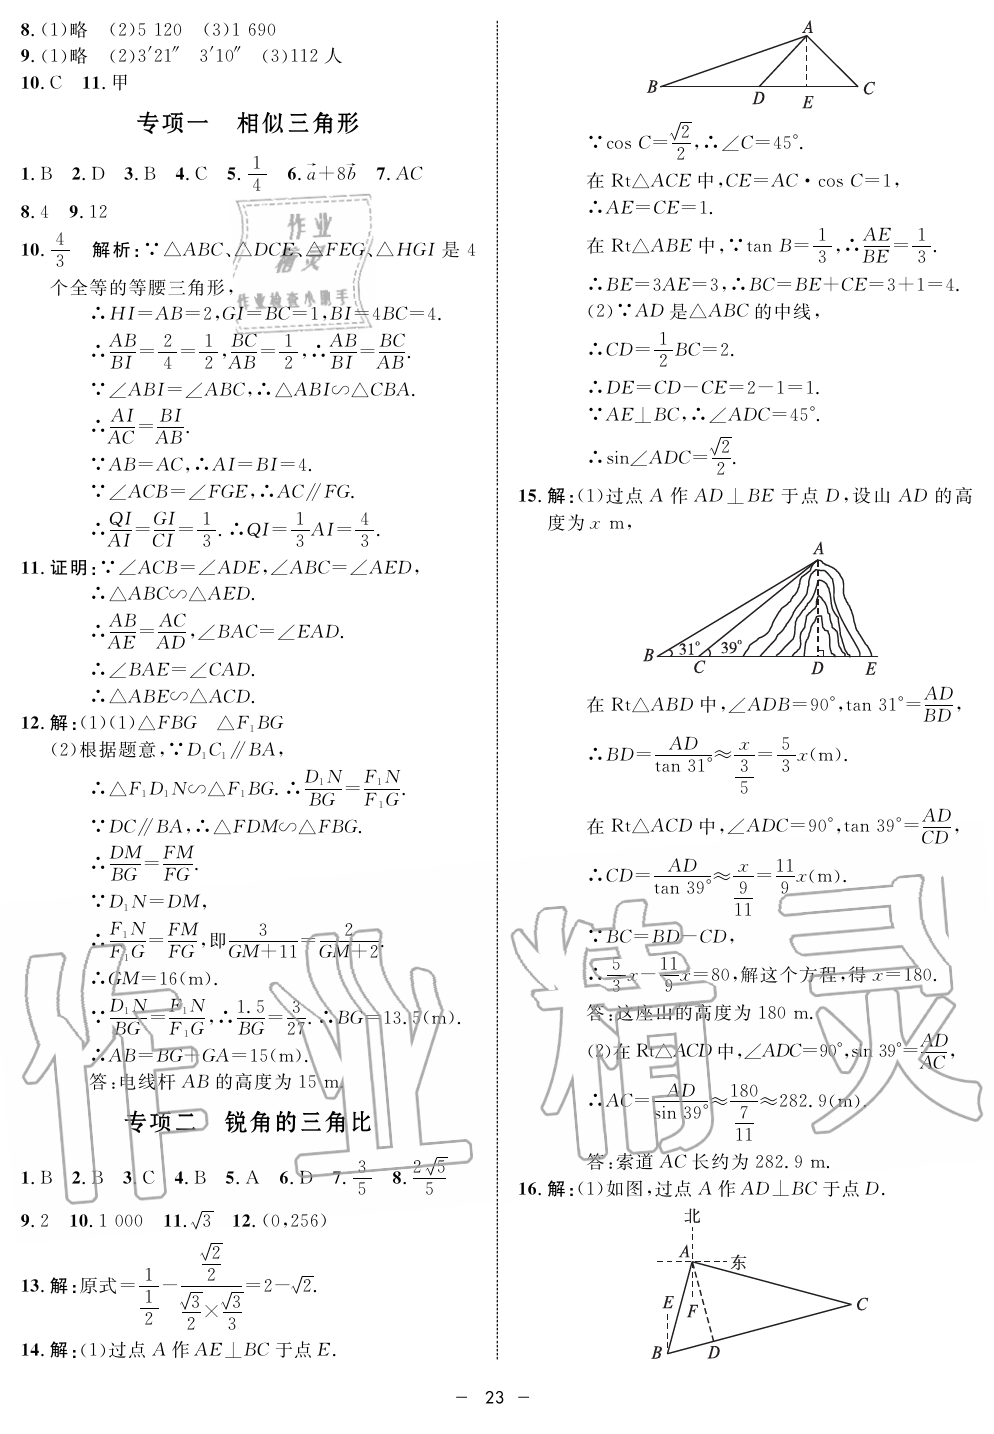 8.(1)略　(2)5 120　(3)1 690
9.(1)略　(2)3′21″　3′10″　(3)112人
10.C　11.甲
专项一　相似三角形
1.B　2.D　3.B　4.C　5.1/4　6.a⃗+8b⃗　7.AC
8.4　9.12
10.4/3　解析:∵△ABC、△DCE、△FEG、△HGI是4
个全等的等腰三角形,
∴HI=AB=2,GI=BC=1,BI=4BC=4.
∴AB/BI=2/4=1/2,BC/AB=1/2,∴AB/BI=BC/AB.
∵∠ABI=∠ABC,∴△ABI∽△CBA.
∴AI/AC=BI/AB.
∵AB=AC,∴AI=BI=4.
∵∠ACB=∠FGE,∴AC∥FG.
∴QI/AI=GI/CI=1/3.∴QI=1/3AI=4/3.
11.证明:∵∠ACB=∠ADE,∠ABC=∠AED,
∴△ABC∽△AED.
∴AB/AE=AC/AD,∠BAC=∠EAD.
∴∠BAE=∠CAD.
∴△ABE∽△ACD.
12.解:(1)(1)△FBG　△F₁BG
(2)根据题意,∵D₁C₁∥BA,
∴△F₁D₁N∽△F₁BG.∴D₁N/BG=F₁N/F₁G.
∵DC∥BA,∴△FDM∽△FBG.
∴DM/BG=FM/FG.
∵D₁N=DM,
∴F₁N/F₁G=FM/FG,即3/(GM+11)=2/(GM+2).
∴GM=16(m).
∵D₁N/BG=F₁N/F₁G,∴1.5/BG=3/27.∴BG=13.5(m).
∴AB=BG+GA=15(m).
答:电线杆AB的高度为15 m.
专项二　锐角的三角比
1.B　2.B　3.C　4.B　5.A　6.D　7.3/5　8.2√5/5
9.2　10.1 000　11.√3　12.(0,256)
13.解:原式=1/(1/2)-(√2/2)/(√3/2×√3/3)=2-√2.
14.解:(1)过点A作AE⊥BC于点E.
A
B
D
E
C
∵cos C=√2/2,∴∠C=45°.
在Rt△ACE中,CE=AC·cos C=1,
∴AE=CE=1.
在Rt△ABE中,∵tan B=1/3,∴AE/BE=1/3.
∴BE=3AE=3,∴BC=BE+CE=3+1=4.
(2)∵AD是△ABC的中线,
∴CD=1/2BC=2.
∴DE=CD-CE=2-1=1.
∵AE⊥BC,∴∠ADC=45°.
∴sin∠ADC=√2/2.
15.解:(1)过点A作AD⊥BE于点D,设山AD的高
度为x m,
A
31° 39°
B C D E
在Rt△ABD中,∠ADB=90°,tan 31°=AD/BD,
∴BD=AD/tan 31°≈x/(3/5)=5/3x(m).
在Rt△ACD中,∠ADC=90°,tan 39°=AD/CD,
∴CD=AD/tan 39°≈x/(9/11)=11/9x(m).
∵BC=BD-CD,
∴5/3x-11/9x=80,解这个方程,得x=180.
答:这座山的高度为180 m.
(2)在Rt△ACD中,∠ADC=90°,sin 39°=AD/AC,
∴AC=AD/sin 39°≈180/(7/11)≈282.9(m).
答:索道AC长约为282.9 m.
16.解:(1)如图,过点A作AD⊥BC于点D.
北
A
东
E F C
B D
- 23 -
作业
精灵
作业检查小助手
作业精灵